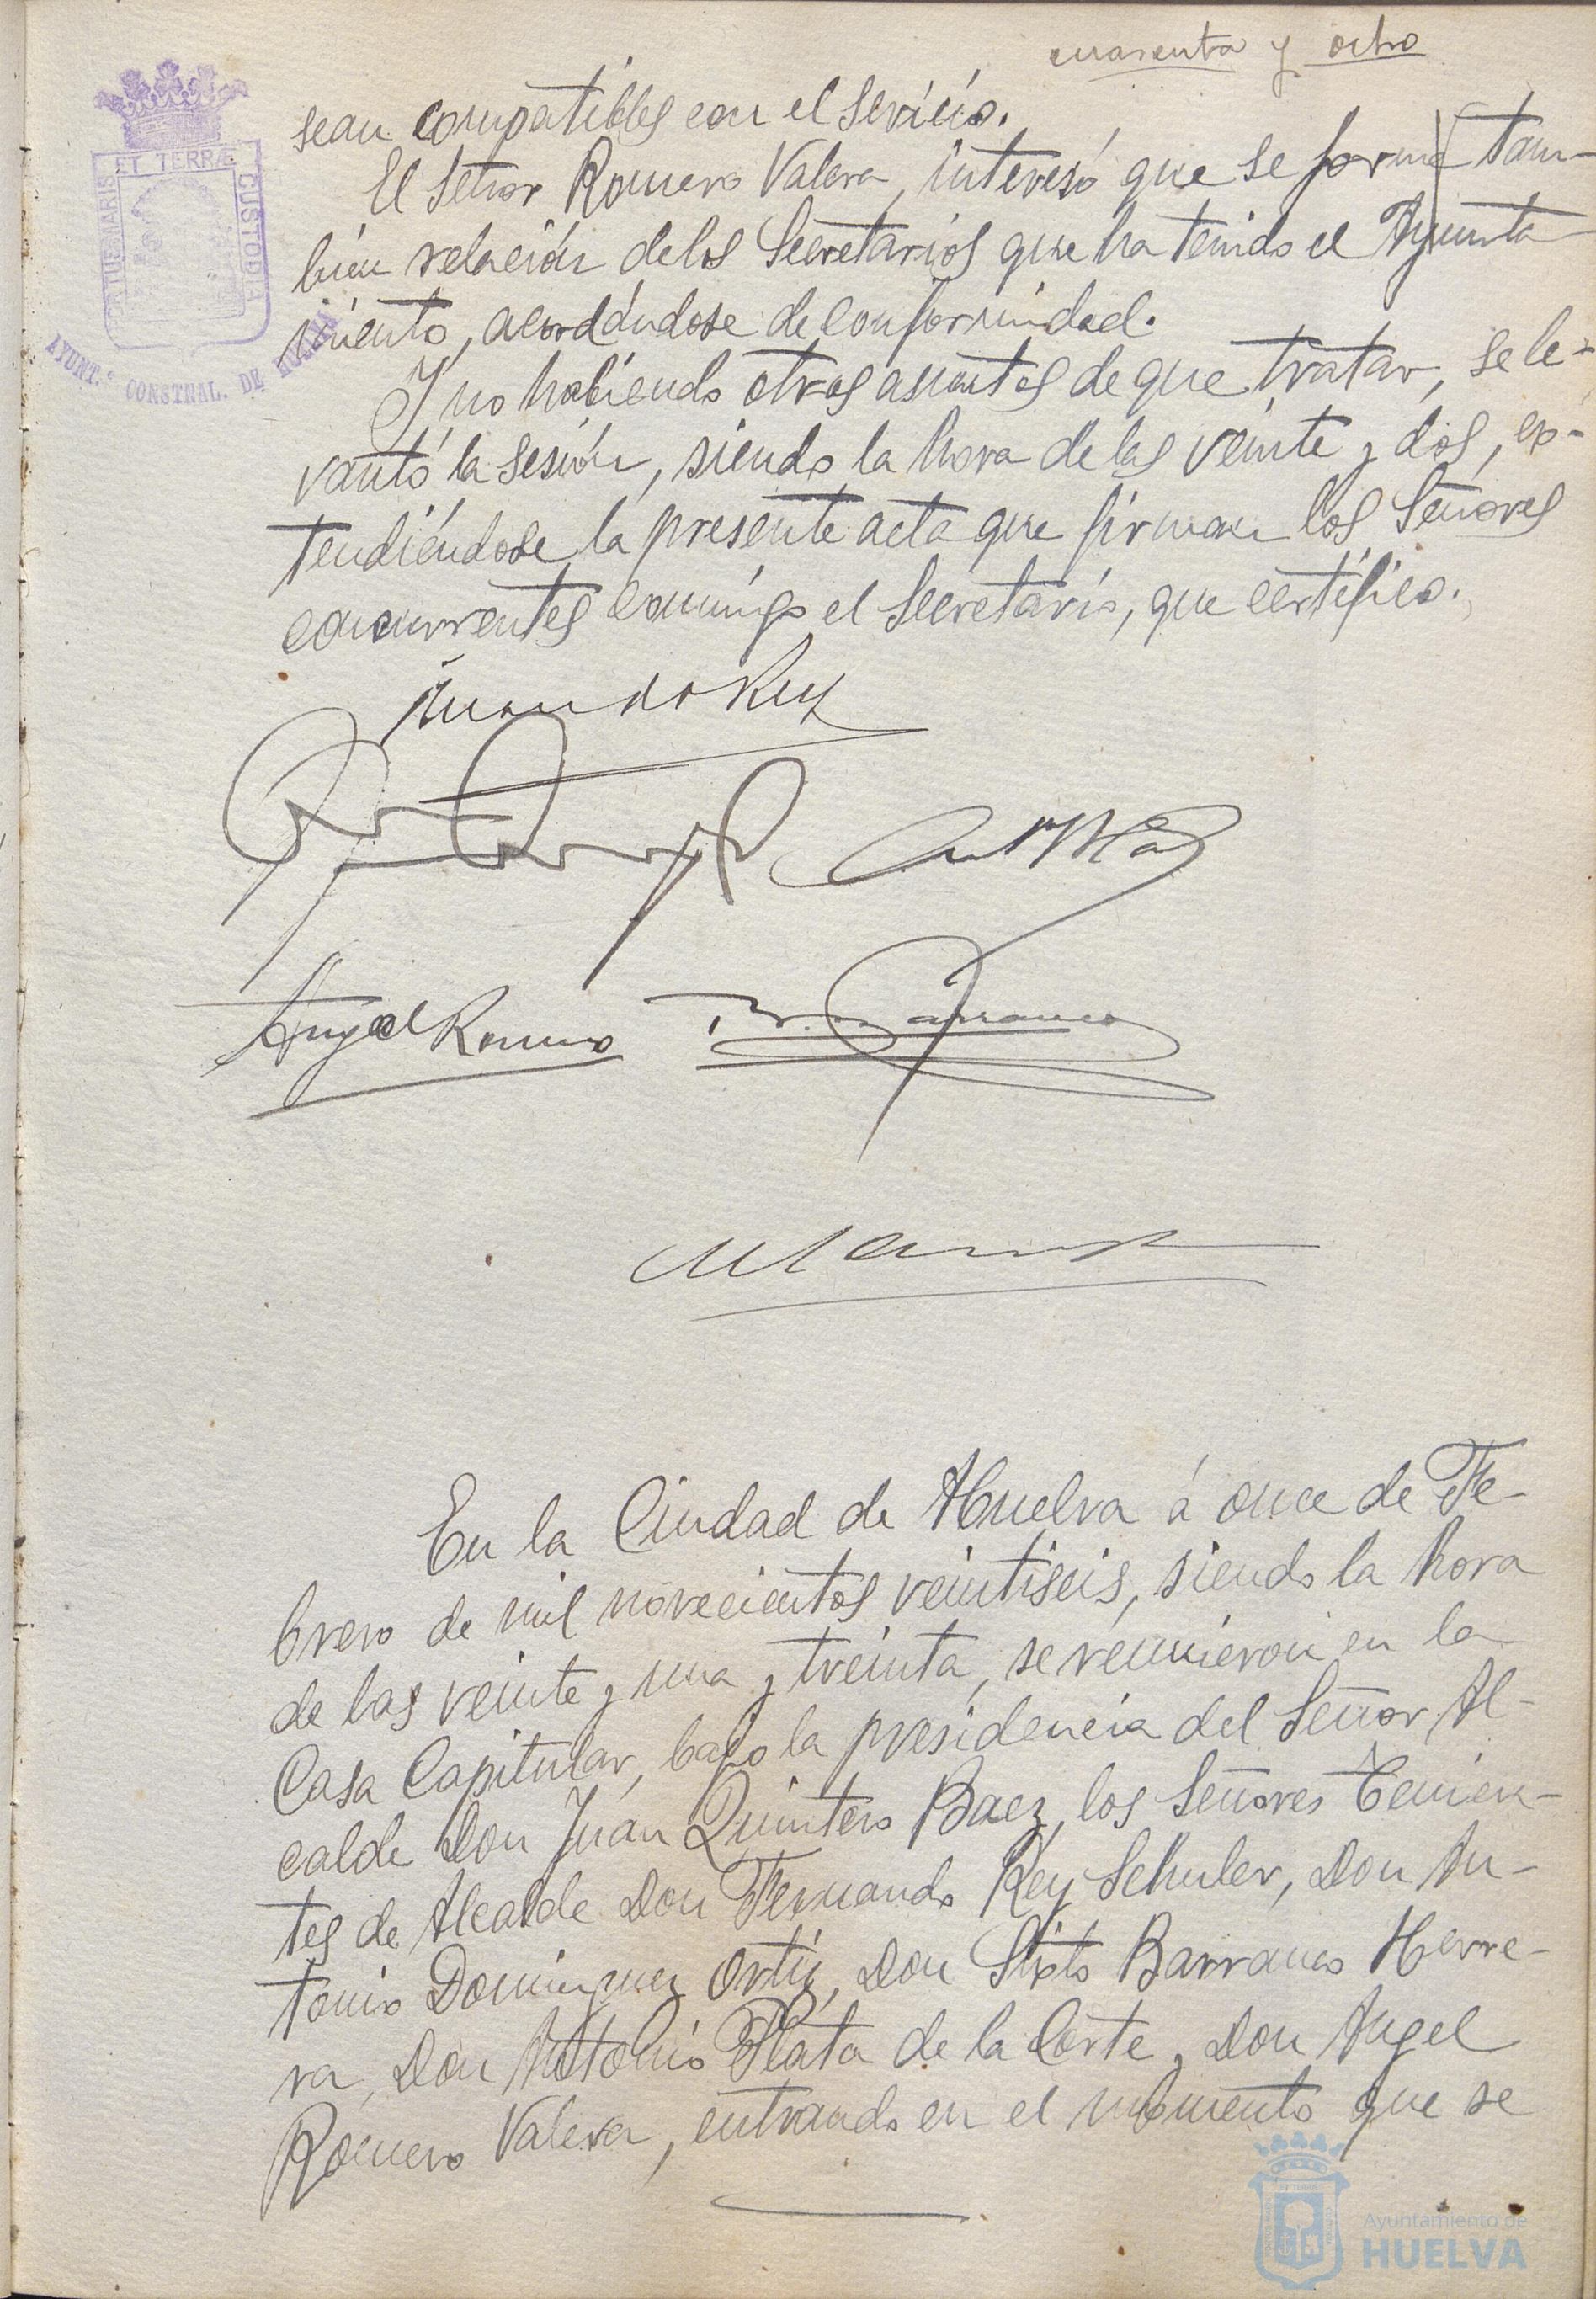 cuarenta y ocho
sean compatibles con el servicio.
El Señor Romero Valera, interesó que se forme tam-
bien relación delos Secretarios que ha tenido el Ayunta
miento, acordándose de conformidad.
Y no habiendo otros asuntos de que tratar, se le-
vantó la sesión, siendo la hora de las veinte y dos, ex-
tendiéndose la presente acta que firman los Señores
concurrentes conmigo el Secretario, que certifico.
Angel Romero
Barranco
En la Ciudad de Huelva á once de Fe-
brero de mil novecientos veintiseis, siendo la hora
de las veinte y una y treinta, se reunieron en la
Casa Capitular, bajo la presidencia del Señor Al-
calde Don Juan Quintero Baez, los Señores Tenien-
tes de Alcalde Don Fernando Rey Schuler, Don An-
tonio Dominguez Ortiz, Don Sixto Barranco Herre-
ra, Don Antonio Plata de la Corte, Don Angel
Romero Valera, entrando en el momento que se
PORTUS MARIS ET TERRÆ CUSTODIA
AYUNT.º CONSTNAL. DE HUELVA
Ayuntamiento de
HUELVA